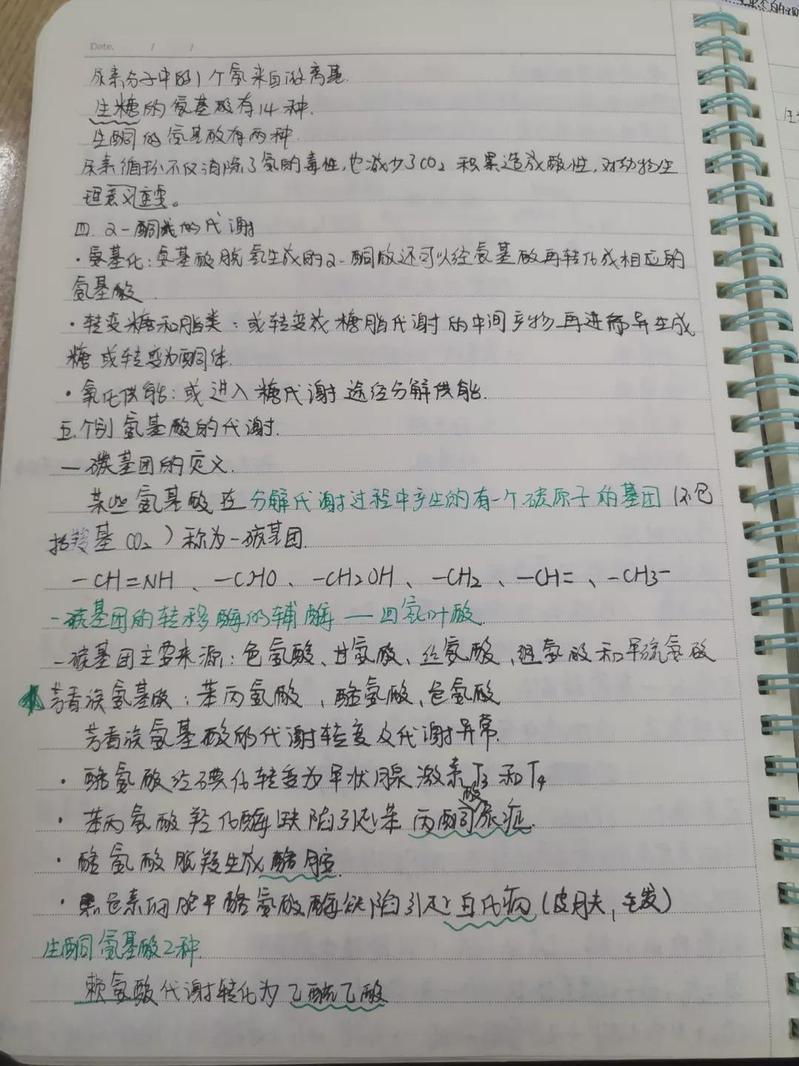 Date. / /
尿素分子中的1个氮来自游离氨
生糖的氨基酸有14种.
生酮的氨基酸有两种
尿素循环不仅消除了氨的毒性,也减少了CO2积累造成酸性,对动物生
理意义重要。
四. α-酮酸的代谢
·氨基化:氨基酸脱氨生成的α-酮酸还可以经氨基酸再转化成相应的
氨基酸.
·转变糖和脂类:或转变成糖脂代谢的中间产物再进而异生成
糖或转变为酮体.
·氧化供能:或进入糖代谢途径分解供能.
五.个别氨基酸的代谢.
一碳基团的定义.
某些氨基酸在分解代谢过程中产生的有一个碳原子的基团(不包
括羧基CO2)称为一碳基团.
—CH=NH、—CHO、—CH2OH、—CH2、—CH=、—CH3—
一碳基团的转移酶的辅酶——四氢叶酸.
一碳基团主要来源:色氨酸、甘氨酸、丝氨酸、组氨酸和甲硫氨酸
芳香族氨基酸:苯丙氨酸、酪氨酸、色氨酸
芳香族氨基酸的代谢转变及代谢异常.
·酪氨酸经碘化转变为甲状腺激素T3和T4
·苯丙氨酸羟化酶缺陷引起苯丙酮酸尿症.
·酪氨酸脱羧生成酪胺.
·黑色素细胞中酪氨酸酶缺陷引起白化病(皮肤,毛发)
生酮氨基酸2种.
赖氨酸代谢转化为乙酰乙酸